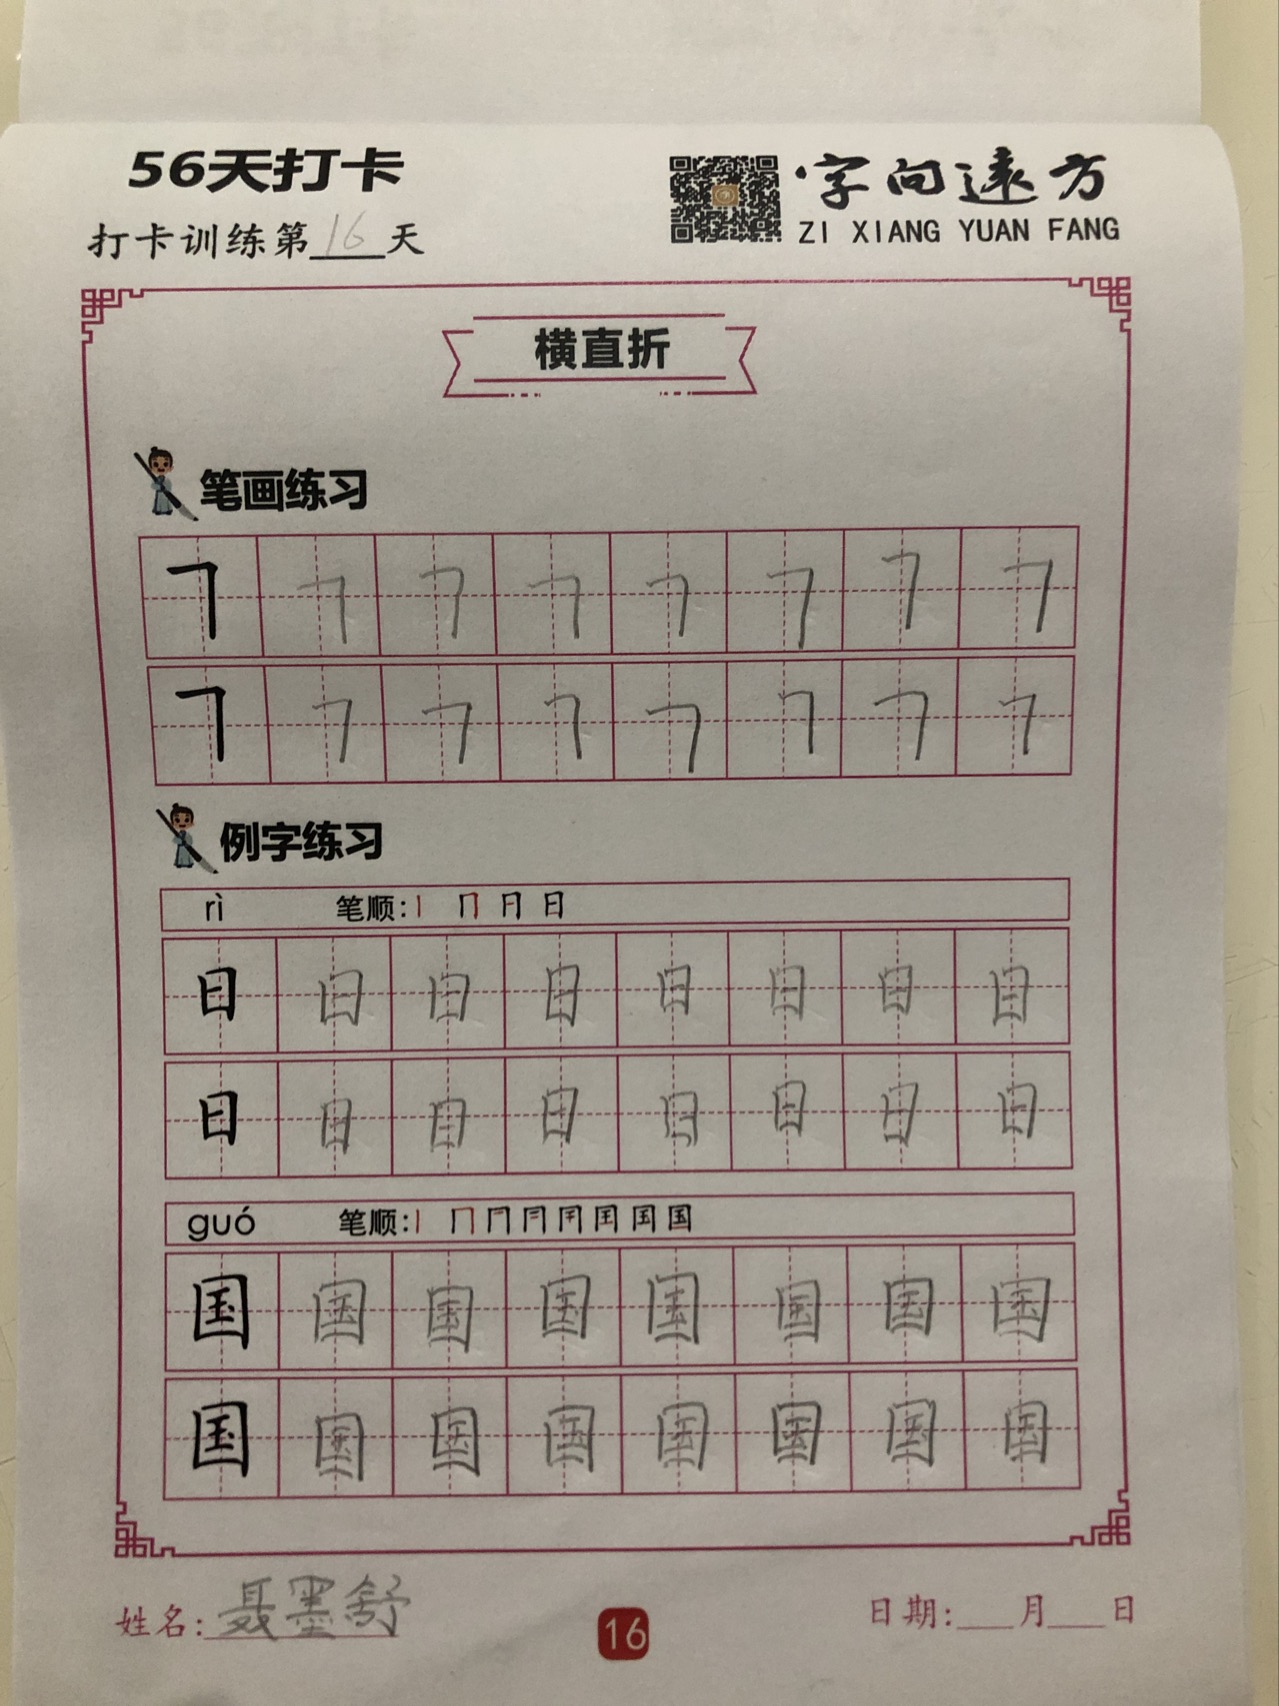 56天打卡
字向遠方
打卡训练第16天
ZI XIANG YUAN FANG
横直折
笔画练习
㇕ ㇕ ㇕ ㇕ ㇕ ㇕ ㇕ ㇕
㇕ ㇕ ㇕ ㇕ ㇕ ㇕ ㇕ ㇕
例字练习
rì 笔顺:丨 冂 日 日
日 日 日 日 日 日 日 日
日 日 日 日 日 日 日 日
guó 笔顺:丨 冂 国
国 国 国 国 国 国 国 国
国 国 国 国 国 国 国 国
姓名:聂墨舒
16
日期:___月___日